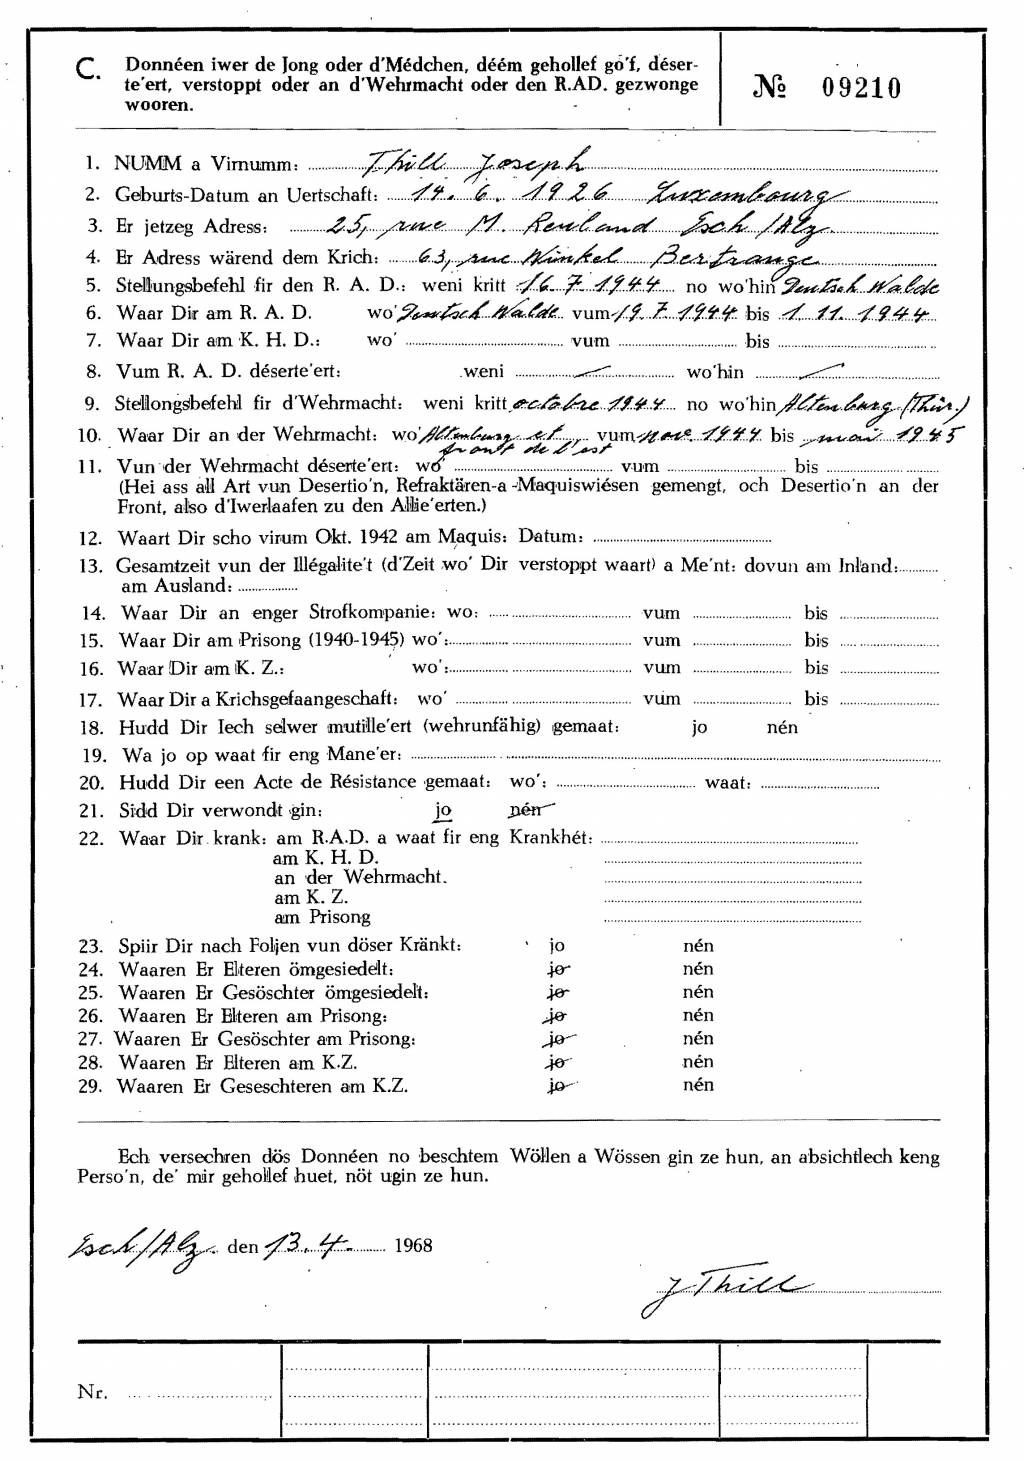 C. Donnéen iwer de Jong oder d'Médchen, déém gehollef gô'f, déser-
te'ert, verstoppt oder an d'Wehrmacht oder den R.AD. gezwonge
wooren.
№ 09210
1. NUMM a Virnumm: Thill Joseph
2. Geburts-Datum an Uertschaft: 14. 6. 1926 Luxembourg
3. Er jetzeg Adress: 25, rue M. Reuland Esch/Alz.
4. Er Adress wärend dem Krich: 63, rue Winkel Bertrange
5. Stellungsbefehl fir den R. A. D.: weni kritt 16. 7. 1944 no wo'hin Deutsch Walde
6. Waar Dir am R. A. D. wo' Deutsch Walde vum 19. 7. 1944 bis 1. 11. 1944
7. Waar Dir am K. H. D.: wo' vum bis
8. Vum R. A. D. déserte'ert: weni wo'hin
9. Stellongsbefehl fir d'Wehrmacht: weni kritt octobre 1944 no wo'hin Altenburg (Thür.)
10. Waar Dir an der Wehrmacht: wo' Altenburg et vum nov. 1944 bis mai 1945
front de l'est
11. Vun der Wehrmacht déserte'ert: wo' vum bis
(Hei ass all Art vun Desertio'n, Refraktären-a-Maquiswiésen gemengt, och Desertio'n an der
Front, also d'Iwerlaafen zu den Allie'erten.)
12. Waart Dir scho virum Okt. 1942 am Maquis: Datum:
13. Gesamtzeit vun der Illégalite't (d'Zeit wo' Dir verstoppt waart) a Me'nt: dovun am Inland:
am Ausland:
14. Waar Dir an enger Strofkompanie: wo: vum bis
15. Waar Dir am Prisong (1940-1945) wo': vum bis
16. Waar Dir am K. Z.: wo': vum bis
17. Waar Dir a Krichsgefaangeschaft: wo' vum bis
18. Hudd Dir Iech selwer mutille'ert (wehrunfähig) gemaat: jo nén
19. Wa jo op waat fir eng Mane'er:
20. Hudd Dir een Acte de Résistance gemaat: wo': waat:
21. Sidd Dir verwondt gin: jo nén
22. Waar Dir krank: am R.A.D. a waat fir eng Krankhét:
am K. H. D.
an der Wehrmacht.
am K. Z.
am Prisong
23. Spiir Dir nach Foljen vun döser Kränkt: jo nén
24. Waaren Er Elteren ömgesiedelt: jo nén
25. Waaren Er Gesöschter ömgesiedelt: jo nén
26. Waaren Er Elteren am Prisong: jo nén
27. Waaren Er Gesöschter am Prisong: jo nén
28. Waaren Er Elteren am K.Z. jo nén
29. Waaren Er Geseschteren am K.Z. jo nén
Ech versechren dös Donnéen no beschtem Wöllen a Wössen gin ze hun, an absichtlech keng
Perso'n, de' mir gehollef huet, nöt ugin ze hun.
Esch/Alz. den 13. 4. 1968
J Thill
Nr.